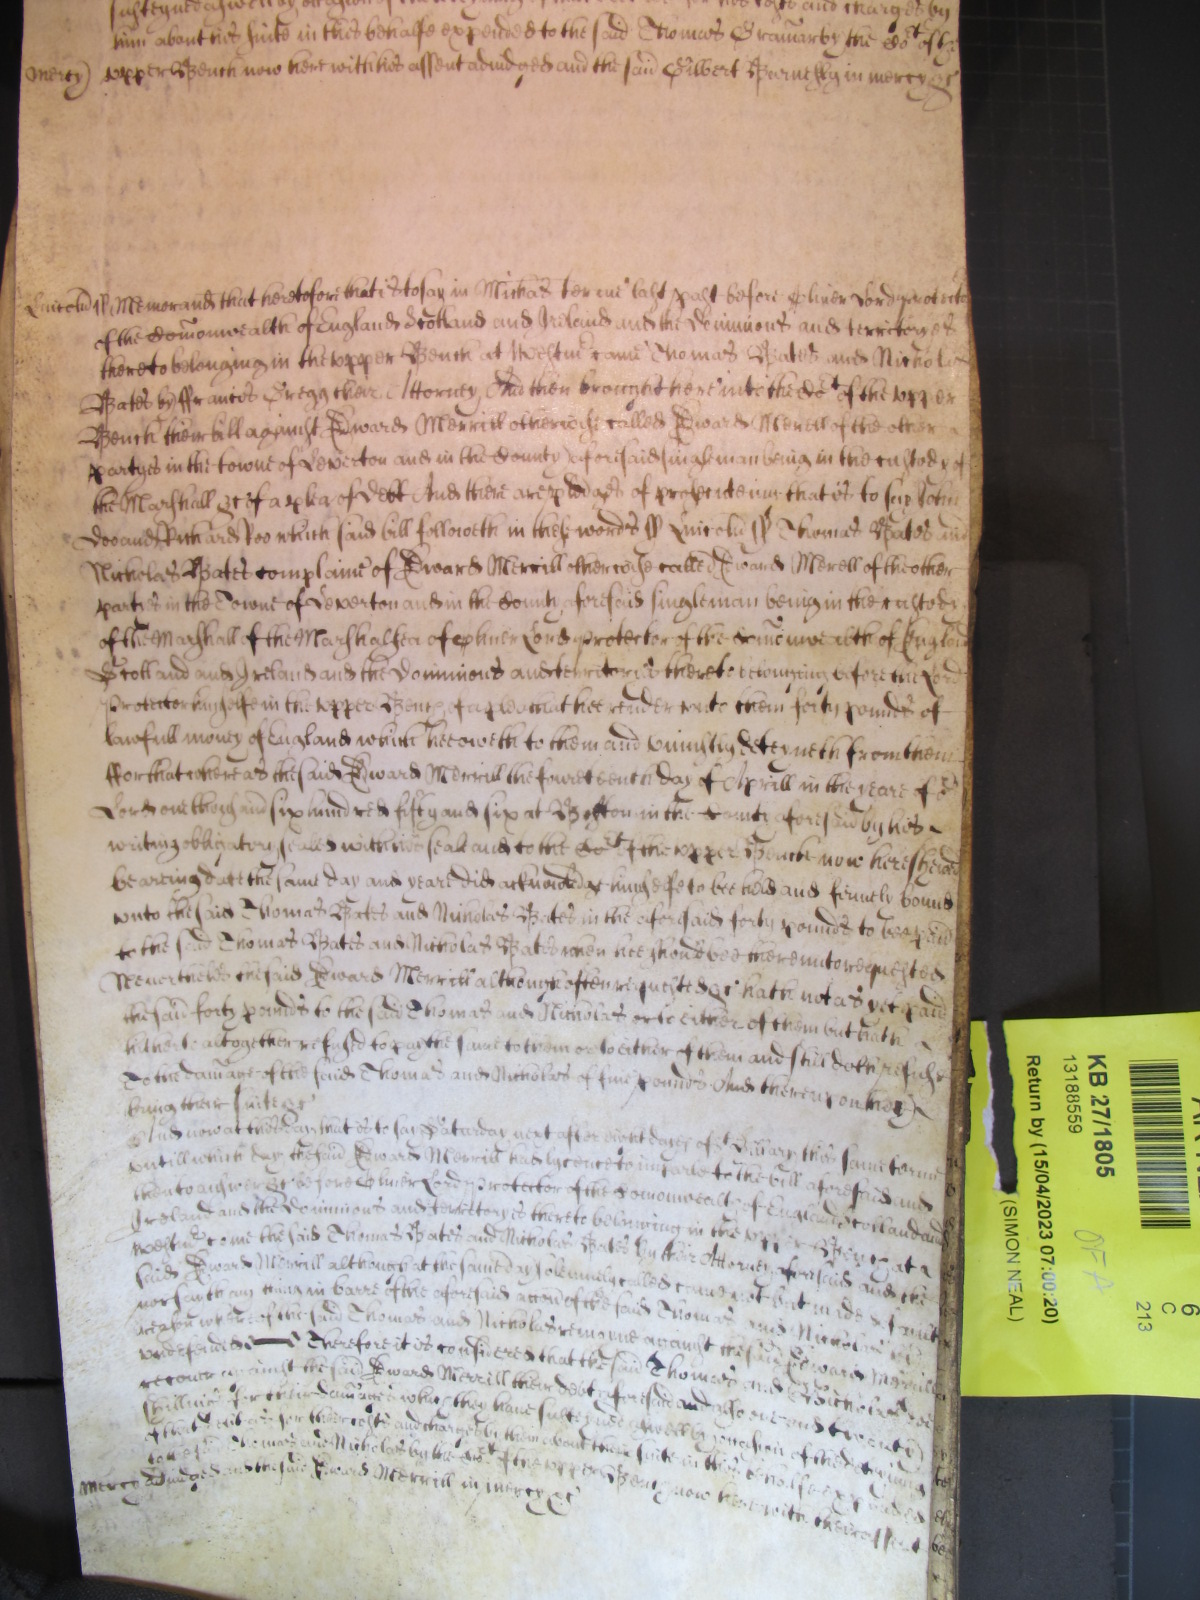 susteyned aswell by occasion of the deteyning of that debt as for his costs and charges by
him about his suite in this behalfe expended to the said Thomas Gramar by the Cort of the
Mercy) upper Bench now here with his assent adiudged and the said Gilbert Burnebly in mercy &c
Lincoln ss Memorand that heretofore that is to say in Michas terme last past before Oliver Lord protector
of the Comonwealth of England Scotland and Ireland and the Dominions and territoryes
thereto belonging in the upper Bench at Westmr came Thomas Bates and Nicholas
Bates by ffrancis Gregg their Attorney And then brought here into the Cort of the upper
Bench their bill against Edward Merrill otherwise called Edward Merell of the other
partyes in the towne of Leverton and in the County aforesaid singleman being in the custody of
the Marshall &c of a plea of Debt And there are pledges of prosecuteing that is to say John
Doo and Richard Roo which said bill followeth in these words ss Lincoln ss Thomas Bates and
Nicholas Bates complaine of Edward Merrill otherwise called Edward Merell of the other
partis in the Towne of Leverton and in the County aforesaid singleman being in the custody
of the Marshall of the Marshalsea of Oliver Lord protector of the Comonwealth of England
Scotland and Ireland and the Dominions and territoris thereto belonging before the Lord
Protector himselfe in the upper Bench of a plea that hee render unto them forty pounds of
lawfull money of England which hee oweth to them and uniustly deteyneth from them
ffor that whereas the said Edward Merrill the fowreteenth day of Aprill in the yeare of or
Lord one thousand six hundred fifty and six at Boston in the County aforesaid by his
writing obligatory sealed with his seale and to the Cort of the upper Bench now here shewed
bearing date the same day and yeare did acknowledge himselfe to bee held and firmely bound
unto the said Thomas Bates and Nicholas Bates in the aforesaid forty pounds to bee paid
to the said Thomas Bates and Nicholas Bates when hee should bee thereunto requested
Nevertheles the said Edward Merrill although often requested &c hath not as yet paid
the said forty pounds to the said Thomas and Nicholas or to either of them but hath
hitherto altogether refused to pay the same to them or to either of them and still doth refuse
To the damage of the said Thomas and Nicholas of five pounds And thereupon they
bring their suite &c
And now at this day that is to say Saturday next after eight dayes of St Hillary this same terme
untill which day the said Edward Merrill had lycence to imparle to the bill aforesaid and
then to answer &c before Oliver Lord protector of the Comonwealth of England Scotland and
Ireland and the Dominions and territoryes thereto belonging in the upper Bench at
Westmr come the said Thomas Bates and Nicholas Bates by their Attorney aforesaid and the
said Edward Merrill although at the same day solemnely called came not but made default
nor saith any thing in barre of the aforesaid accon of the said Thomas and Nicholas
whereof the said Thomas and Nicholas remayne against the said Edward Merrill
undefended Therefore it is considered that the said Thomas and Nicholas doe
recover against the said Edward Merrill their debt aforesaid and also one and twenty
shillings for their damages which they have susteyned aswell by occasion of the deteyning
of that debt as for their costs and charges by them about their suite in this behalfe expended
to the said Thomas and Nicholas by the Cort of the upper Bench now here with their assent
Mercy adiudged and the said Edward Merrill in mercy &c
6
C
213
OFA
KB 27/1805
13188559
Return by (15/04/2023 07:00:20)
(SIMON NEAL)